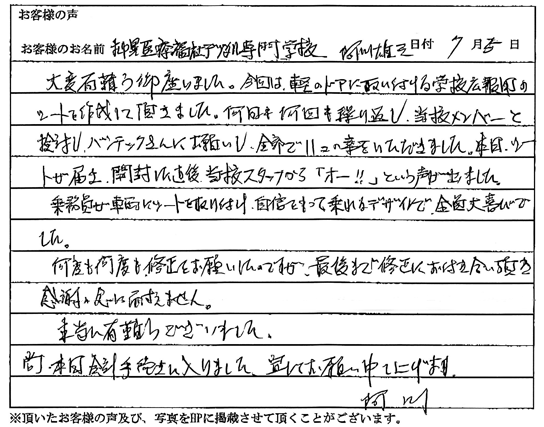 お客様の声
お客様のお名前 群馬医療福祉 専門学校 阿川雄三 日付 7月5日
大変有難う御座いました。今回は、車のドアに取り付ける学校広報用の
シートを作成して頂きました。何回も何回も繰り返し、当校メンバーと
検討し、バンテックさんにお願いし、全部で11コの車をいただきました。本日、シー
トが届き、開封した直後当校スタッフから「オー!!」という声が出ました。
乗務員が車両にシートを取り付け、自信をもって乗れるデザインで、全員大喜びで
した。
何度も何度も修正をお願いしたのですが、最後まで修正にお付き合い頂き
感謝の念に耐えません。
本当に有難うございました。
尚、本日会計手続きに入りました、宜しくお願い申し上げます。
阿川
※頂いたお客様の声及び、写真をHPに掲載させて頂くことがございます。